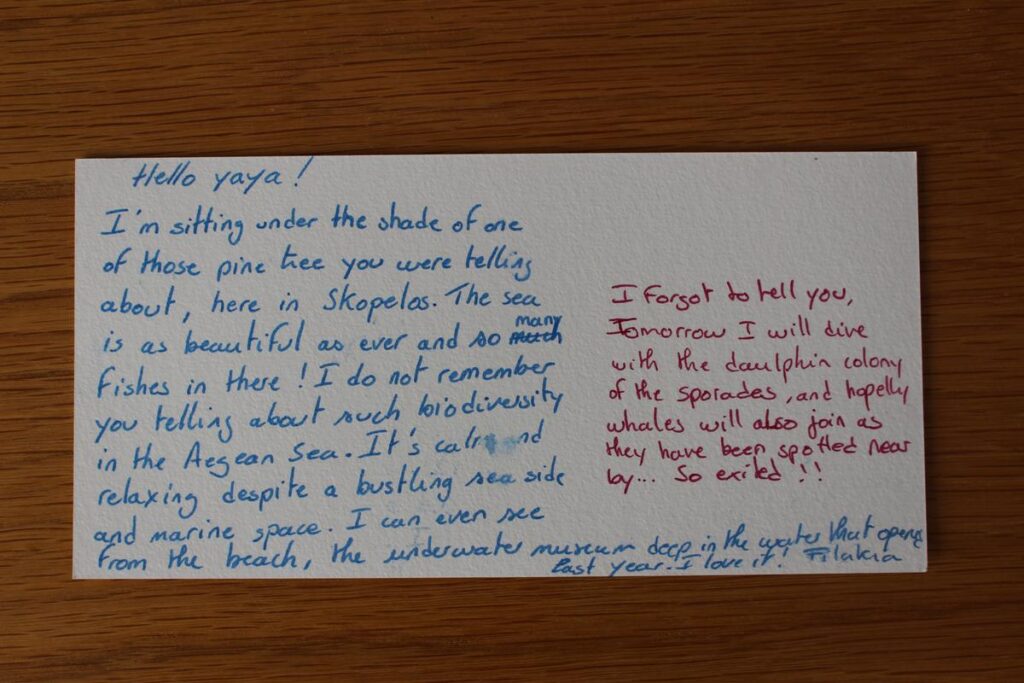 Hello yaya !
I'm sitting under the shade of one
of those pine tree you were telling
about, here in Skopelos. The sea
is as beautiful as ever and so much many
fishes in there ! I do not remember
you telling about such biodiversity
in the Aegean Sea. It's calm and
relaxing despite a bustling sea side
and marine space. I can even see
from the beach, the underwater museum deep in the water that opened
last year. I love it ! Filakia
I forgot to tell you,
Tomorrow I will dive
with the daulphin colony
of the sporades, and hopelly
whales will also join as
they have been spotted near
by... So exited !!